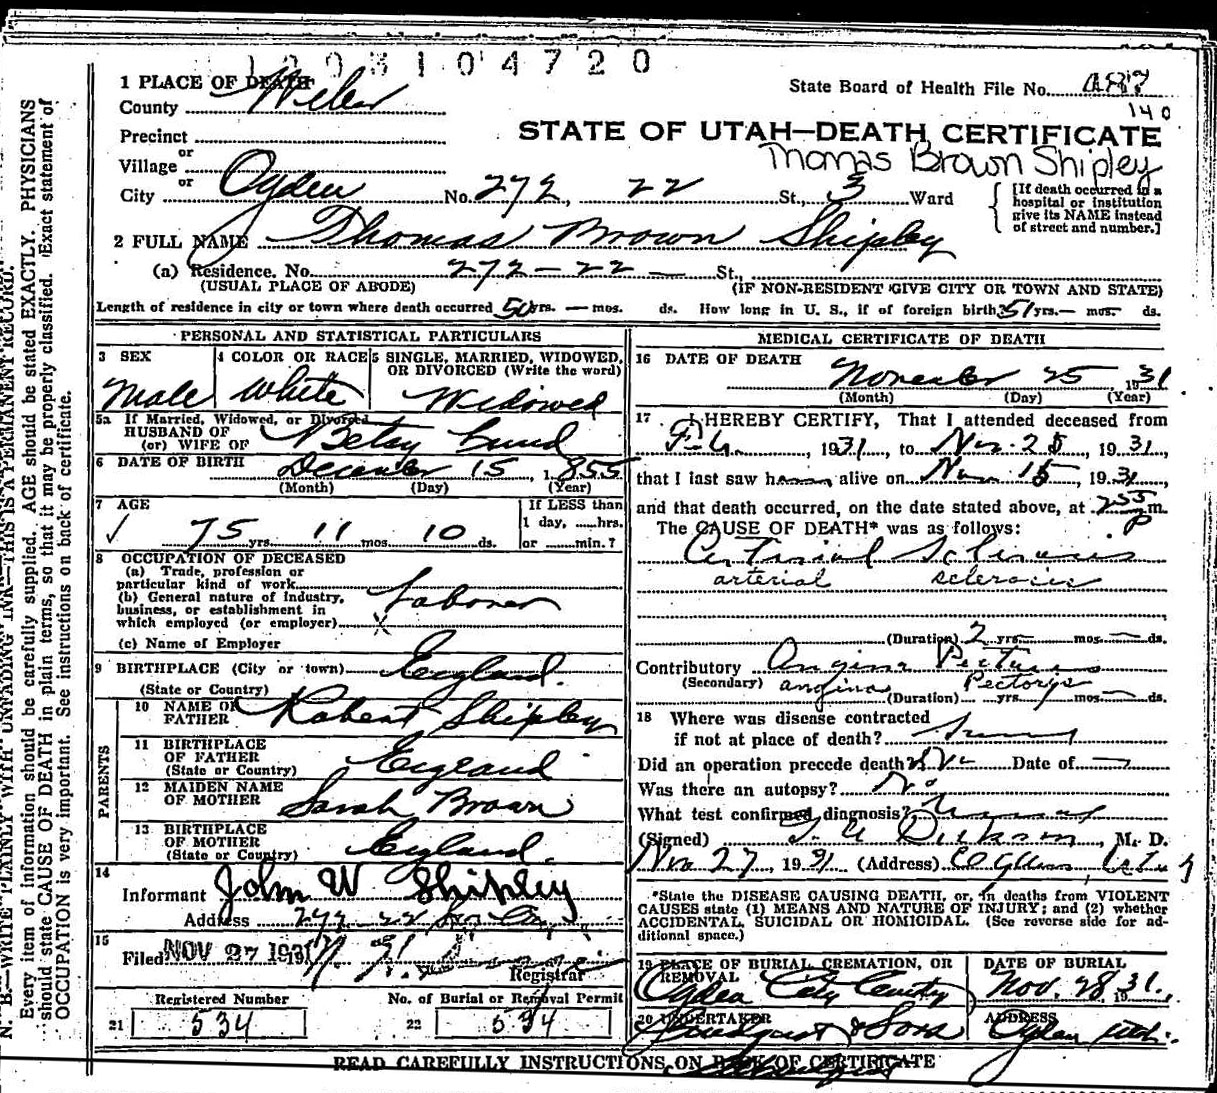 1203104720
1 PLACE OF DEATH
County Weber
State Board of Health File No. 487
140
Precinct
or
Village
or
STATE OF UTAH—DEATH CERTIFICATE
Thomas Brown Shipley
City Ogden No. 272, 22 St., 3 Ward
[If death occurred in a
hospital or institution
give its NAME instead
of street and number.]
2 FULL NAME Thomas Brown Shipley
(a) Residence. No. 272-22 — St.,
(USUAL PLACE OF ABODE) (IF NON-RESIDENT GIVE CITY OR TOWN AND STATE)
Length of residence in city or town where death occurred 50 yrs. — mos. ds. How long in U. S., if of foreign birth 51 yrs. — mos. ds.
PERSONAL AND STATISTICAL PARTICULARS
3 SEX
Male
4 COLOR OR RACE
White
5 SINGLE, MARRIED, WIDOWED,
OR DIVORCED (Write the word)
Widowed
5a If Married, Widowed, or Divorced
HUSBAND OF
(or) WIFE OF Betsy
6 DATE OF BIRTH December 15, 1855
(Month) (Day) (Year)
7 AGE
75 yrs. 11 mos. 10 ds.
If LESS than
1 day, ......hrs.
or ......min.?
8 OCCUPATION OF DECEASED
(a) Trade, profession or
particular kind of work
(b) General nature of industry,
business, or establishment in
which employed (or employer)
Laborer
x
(c) Name of Employer
9 BIRTHPLACE (City or town) England.
(State or Country)
PARENTS
10 NAME OF
FATHER Robert Shipley
11 BIRTHPLACE
OF FATHER
(State or Country) England
12 MAIDEN NAME
OF MOTHER Sarah Brown
13 BIRTHPLACE
OF MOTHER
(State or Country) England.
14
Informant John W Shipley
Address 272 22
15
Filed NOV 27 1931
Registrar
Registered Number
21 534
No. of Burial or Removal Permit
22 594
MEDICAL CERTIFICATE OF DEATH
16 DATE OF DEATH
November 25, 1931
(Month) (Day) (Year)
17 I HEREBY CERTIFY, That I attended deceased from
Feb., 1931, to Nov. 25, 1931,
that I last saw h alive on Nov 15, 1931,
and that death occurred, on the date stated above, at 255 P m.
The CAUSE OF DEATH* was as follows:
Arterial Sclerosis
arterial sclerosis
(Duration) 2 yrs. — mos. — ds.
Contributory Angina Pectoris
(Secondary) angina Pectoris
(Duration) yrs. mos. — ds.
18 Where was disease contracted
if not at place of death?
Did an operation precede death? No Date of —
Was there an autopsy? No
What test confirmed diagnosis?
(Signed) Dickson, M. D.
Nov 27, 1931 (Address) Ogden, Utah
*State the DISEASE CAUSING DEATH, or, in deaths from VIOLENT
CAUSES state (1) MEANS AND NATURE OF INJURY; and (2) whether
ACCIDENTAL, SUICIDAL OR HOMICIDAL. (See reverse side for ad-
ditional space.)
19 PLACE OF BURIAL CREMATION, OR
REMOVAL
Ogden City
DATE OF BURIAL
Nov. 28, 1931.
20 UNDERTAKER
& Sons
ADDRESS
Ogden Utah.
READ CAREFULLY INSTRUCTIONS ON BACK OF CERTIFICATE
N. B.—WRITE PLAINLY WITH UNFADING INK—THIS IS A PERMANENT RECORD.
Every item of information should be carefully supplied. AGE should be stated EXACTLY. PHYSICIANS
should state CAUSE OF DEATH in plain terms, so that it may be properly classified. Exact statement of
OCCUPATION is very important. See instructions on back of certificate.